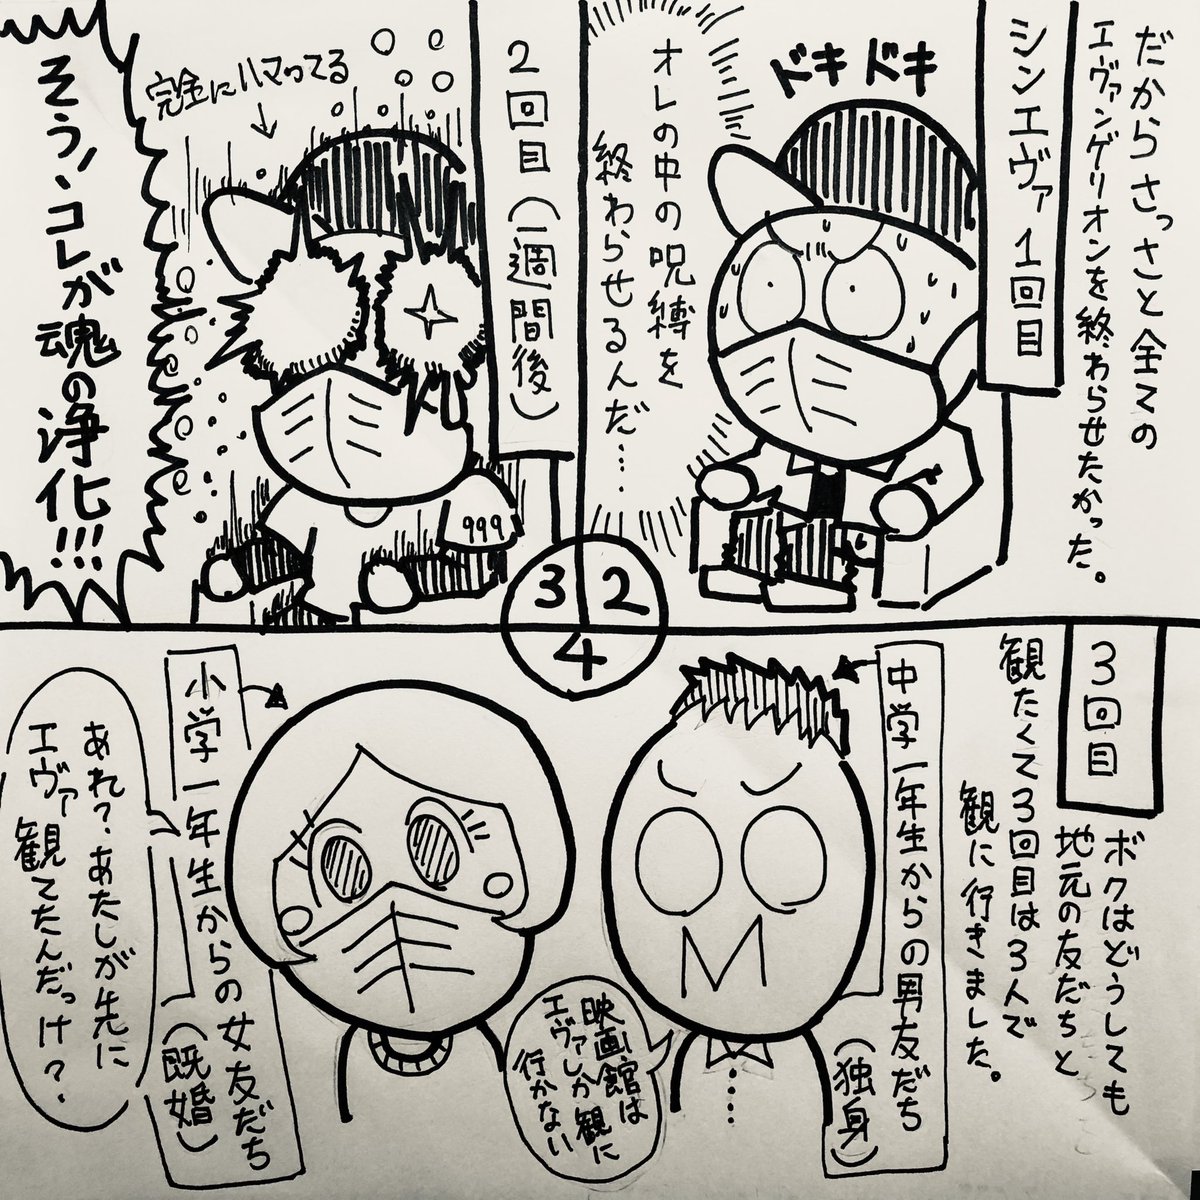 だからさっさと全ての
エヴァンゲリオンを終わらせたかった。
シンエヴァ1回目
ドキドキ
オレの中の呪縛を
終わらせるんだ…
2
2回目(一週間後)
完全にハマってる
999
そう、コレが魂の浄化!!!
3
3回目
ボクはどうしても
地元の友だちと
観たくて3回目は3人で
観に行きました。
4
中学一年生からの男友だち
(独身)
映画館は
エヴァしか観に
行かない
小学一年生からの女友だち
(既婚)
あれ?あたしが先に
エヴァ観てたんだっけ?